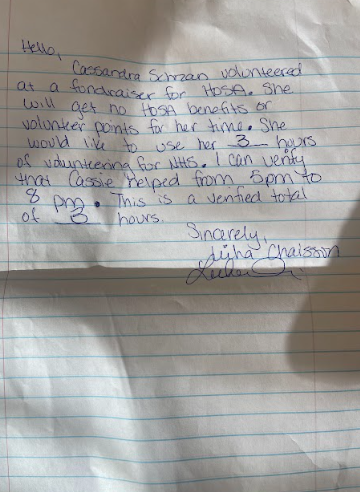 Hello,
Cassandra Schrzan volunteered
at a fundraiser for HOSA. She
will get no HOSA benefits or
volunteer points for her time. She
would like to use her 3 hours
of volunteering for NHS. I can verify
that Cassie helped from 5pm to
8 pm. This is a verified total
of 3 hours
Sincerely,
Chaisson